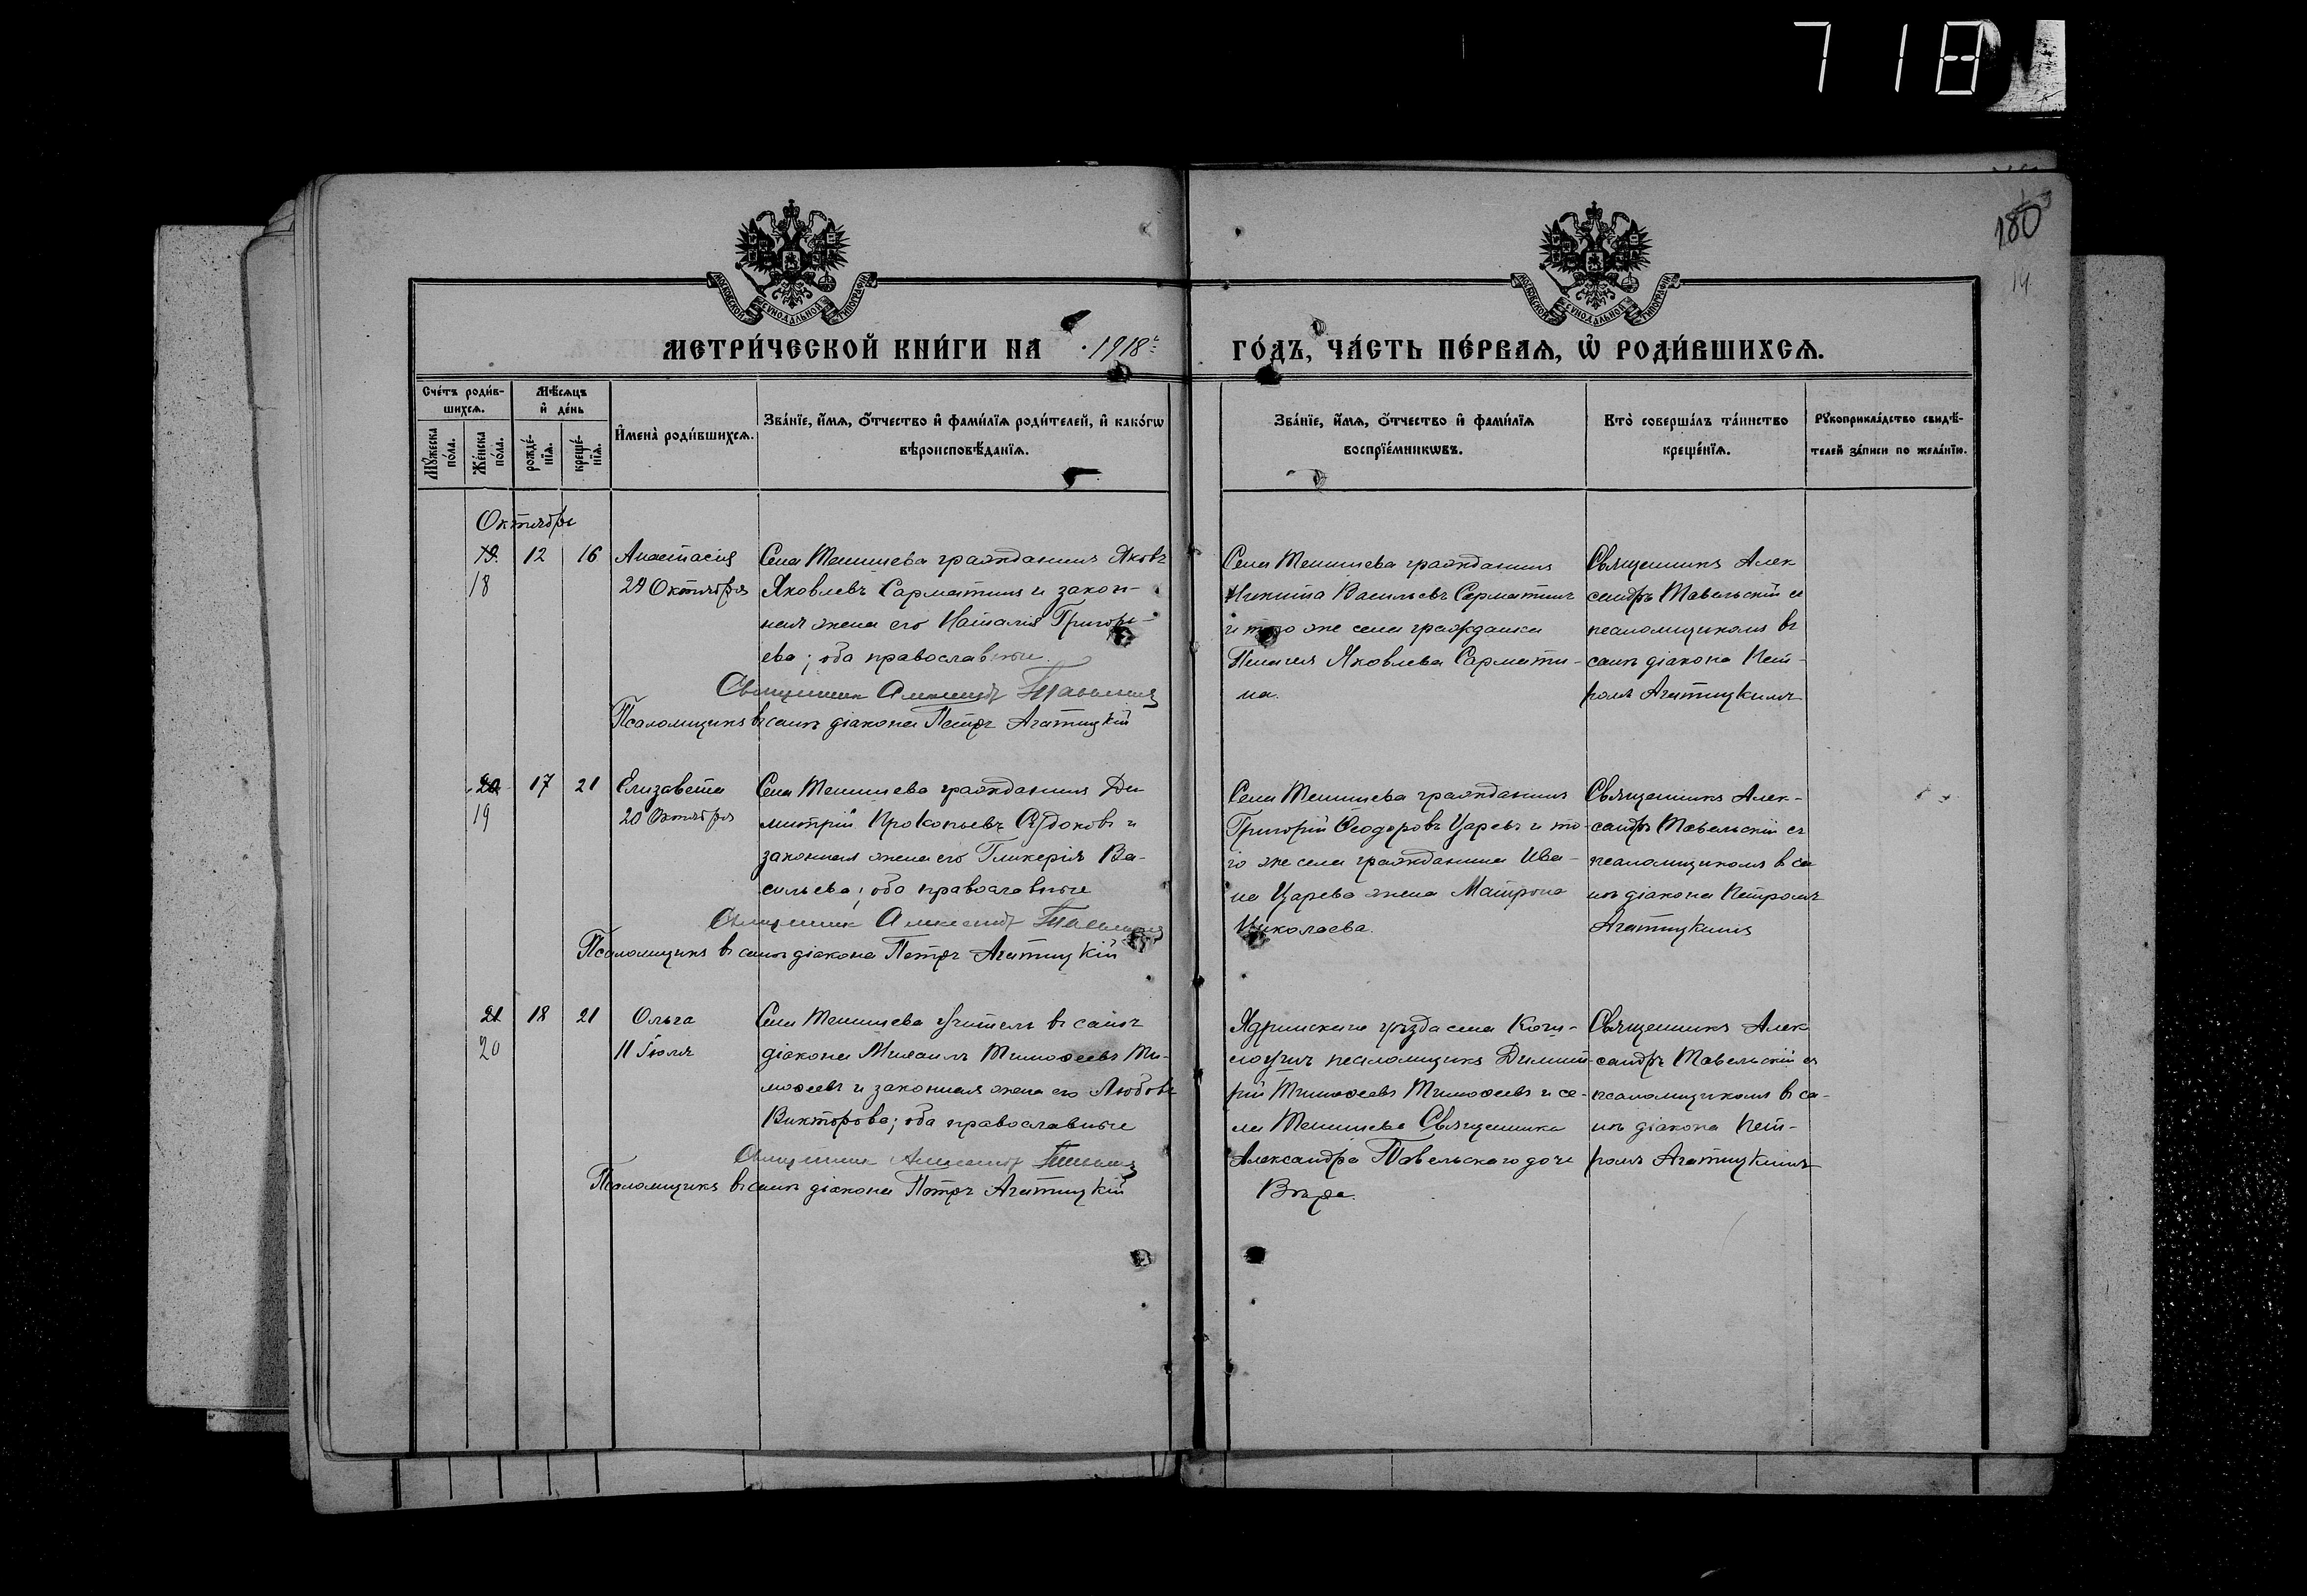 718
180
14
МОСКОВСКОЙ СѴНОДАЛЬНОЙ ТИПОГРАФІИ
МОСКОВСКОЙ СѴНОДАЛЬНОЙ ТИПОГРАФІИ
МЕТРИ́ЧЕСКОЙ КНИ́ГИ НА 1918 г. ГО́ДЪ, ЧА́СТЬ ПЕ́РВАЯ, Ѡ РОДИ́ВШИХСЯ.
Сче́тъ роди́в-
шихся.
Му́жеска по́ла.
Же́нска по́ла.
Мѣ́сяцъ
и де́нь
рожде́-
нія.
креще́-
нія.
Имена̀ роди́вшихся.
Зва́ніе, и́мя, о́тчество и фами́лія роди́телей, и како́гѡ
вѣроисповѣ́данія.
Зва́ніе, и́мя, о́тчество и фами́лія
воспріе́мникѡвъ.
Кто̀ соверша́лъ та́инство
креще́нія.
Рꙋкоприкла́дство свидѣ́-
телей за́писи по жела́нію.
Октябрь
19. 12 16 Анастасія
18 29 Октября
Села Тенишева гражданинъ Яковъ
Яковлевъ Сарматинъ и закон-
ная жена его Наталія Григорь-
ева; оба православные.
Священник Александр Тавельский
Псаломщикъ въ санѣ діакона Петръ Агатицкій
Села Тенишева гражданинъ
Никита Васильевъ Сарматинъ
и того же села гражданка
Пелагея Яковлева Сармати-
на.
Священникъ Алек
сандръ Тавельскій съ
псаломщикомъ въ
санѣ діакона Пет-
ромъ Агатицкимъ
20 17 21 Елизавета
19 20 Октября
Села Тенишева гражданинъ Ди-
митрій Прокопьевъ и
законная жена его Гликерія Ва-
сильева; оба православные
Священник Александр Тавельский
Псаломщикъ въ санѣ діакона Петръ Агатицкій
Села Тенишева гражданинъ
Григорій Ѳеодоровъ Царевъ и то-
го же села гражданина Ива-
на Царева жена Матрона
Николаева.
Священникъ Алек-
сандръ Тавельскій съ
псаломщикомъ въ са
нѣ діакона Петромъ
Агатицкимъ
21 18 21 Ольга
20 11 Іюля
Села Тенишева учитель въ санѣ
діакона Михаилъ Тимоѳеевъ Ти-
моѳеевъ и законная жена его Любовь
Викторова; оба православные
Священник Александр Тавельский
Псаломщикъ въ санѣ діакона Петръ Агатицкій
Ядринскаго уѣзда села
псаломщикъ Димит-
рій Тимоѳеевъ Тимоѳеевъ и се-
ла Тенишева Священника
Александра Тавельскаго дочь
Вѣра.
Священникъ Алек
сандръ Тавельскій съ
псаломщикомъ въ са-
нѣ діакона Пет-
ромъ Агатицкимъ